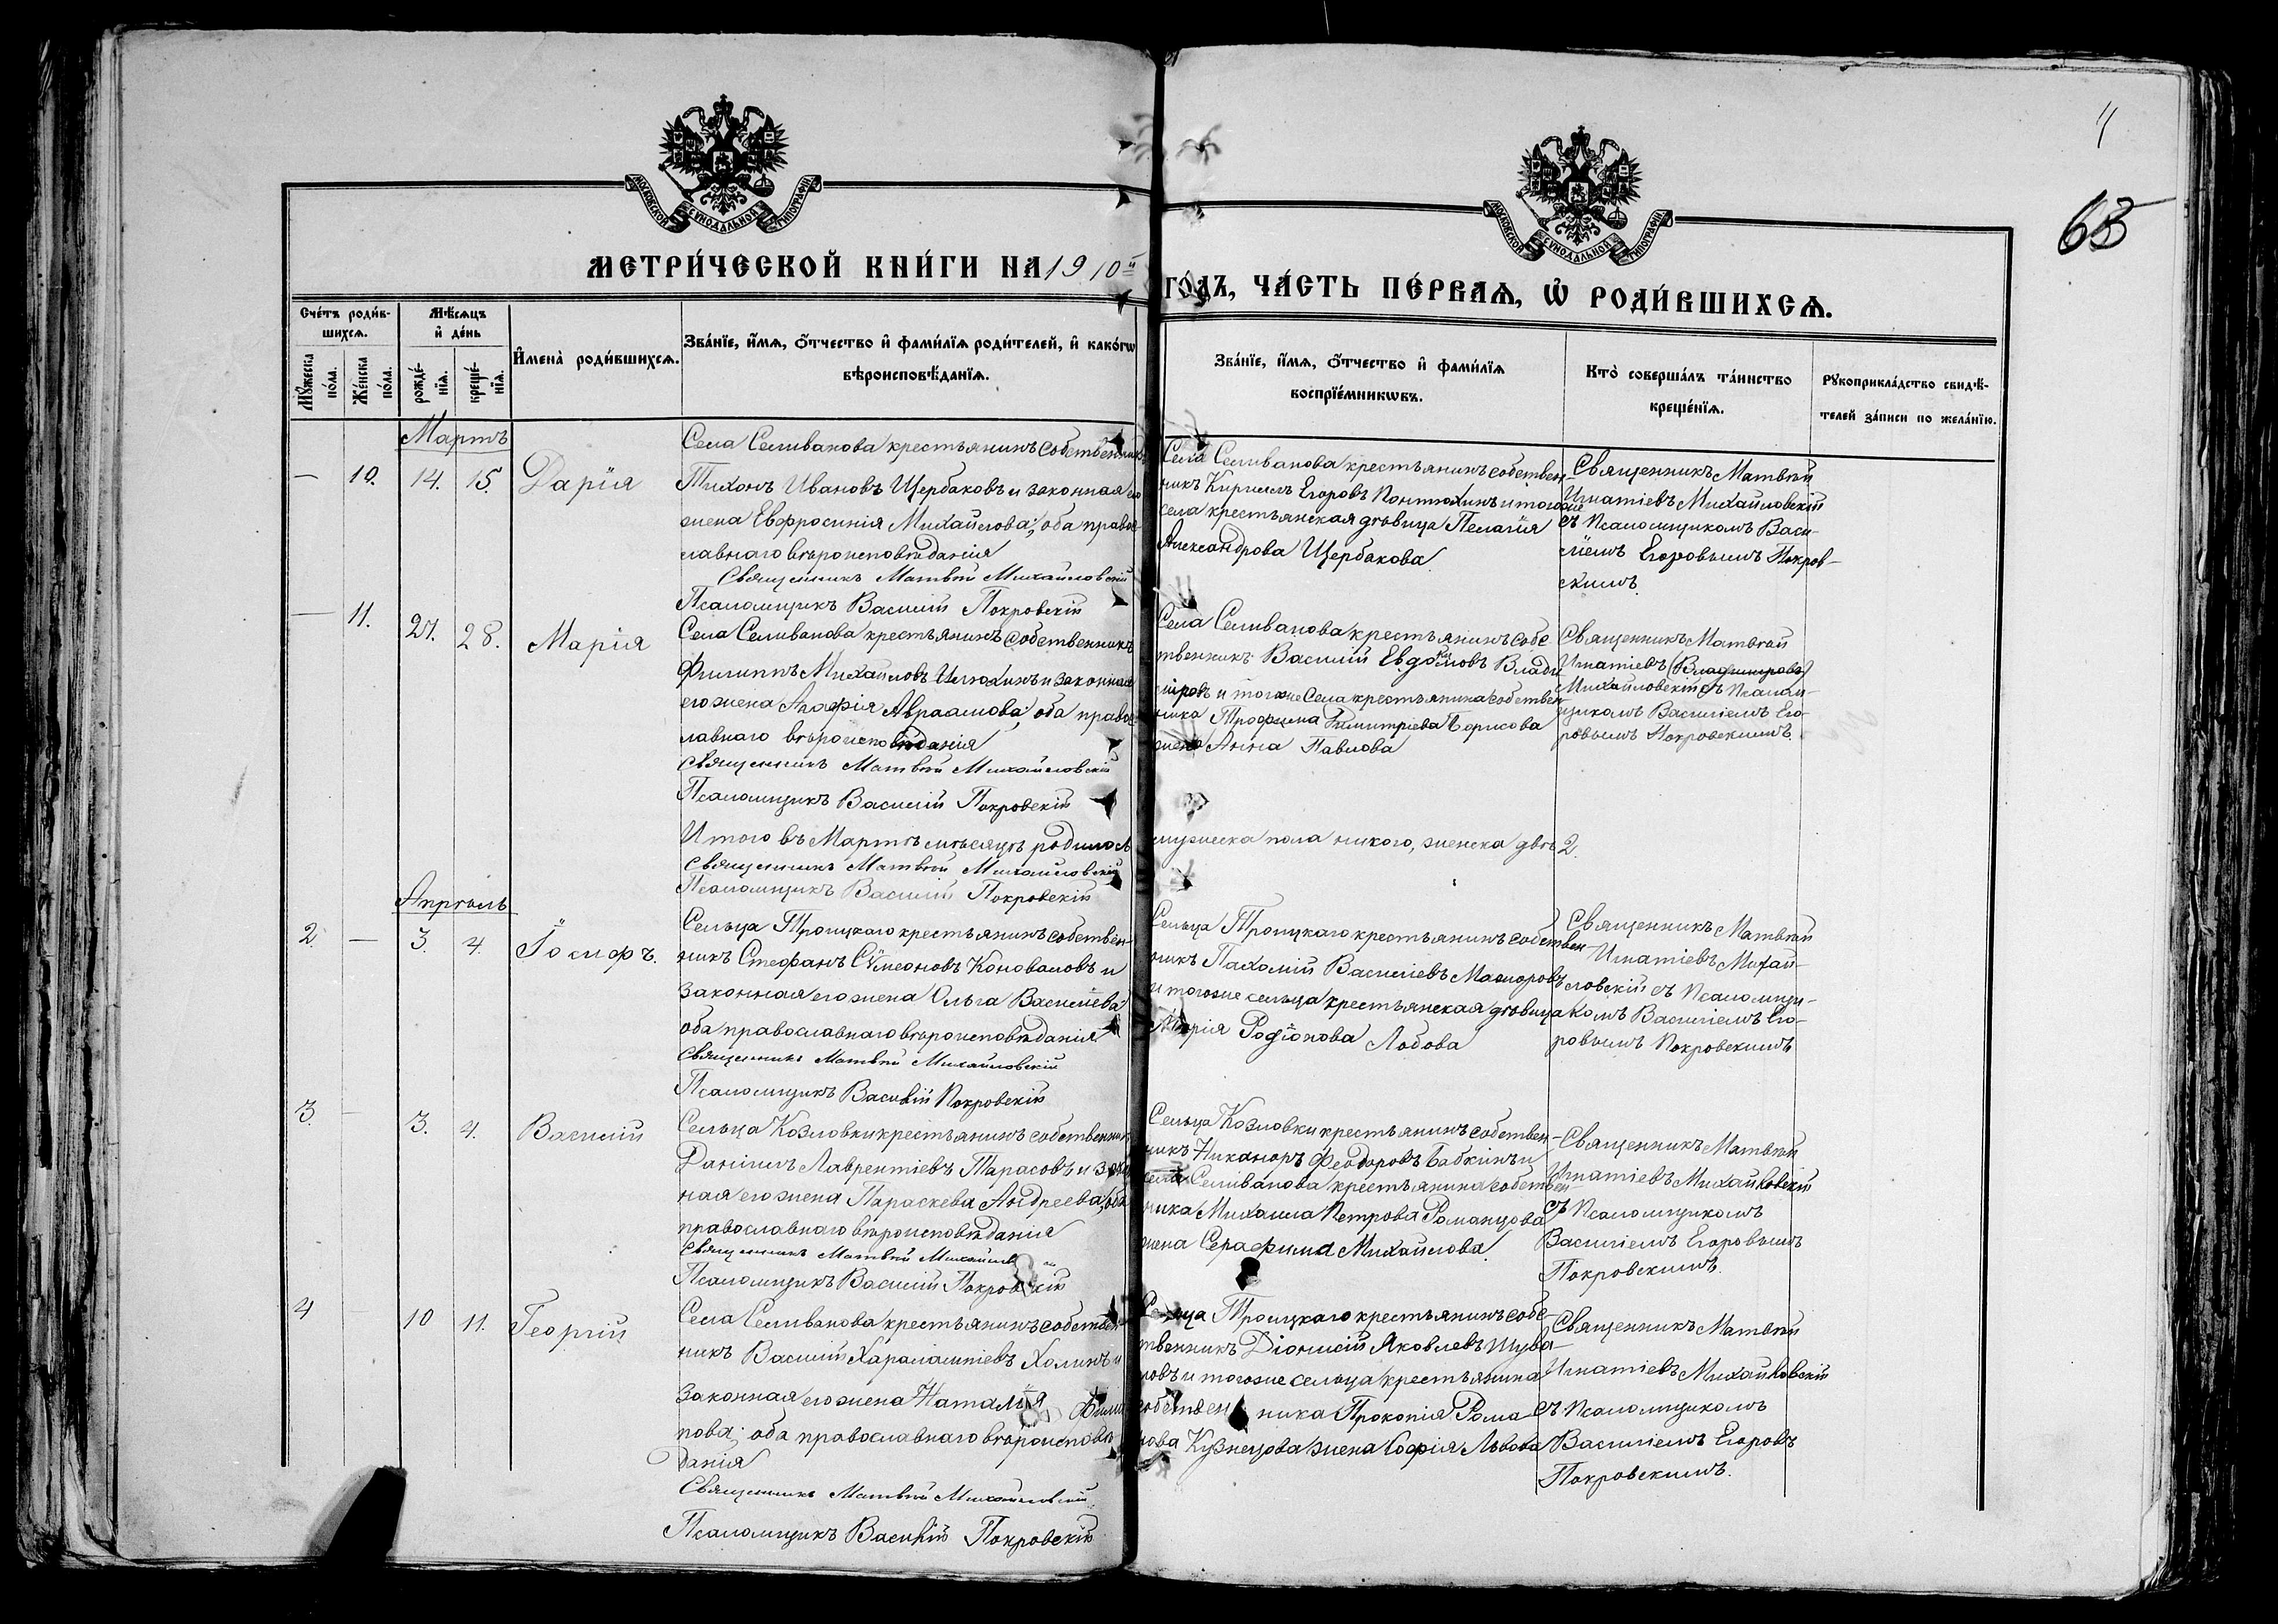 4
65
МОСКОВСКОЙ СѴНОДАЛЬНОЙ ТИПОГРАФІИ
МОСКОВСКОЙ СѴНОДАЛЬНОЙ ТИПОГРАФІИ
МЕТРИ́ЧЕСКОЙ КНИ́ГИ НА 1910й
ГО́ДЪ, ЧА́СТЬ ПЕ́РВАѦ, Ѡ҆ РОДИ́ВШИХСѦ.
Сче́тъ роди́в-
шихсѧ.
Мꙋ́жеска по́ла.
Же́нска по́ла.
Мѣ́сѧцъ
и҆ де́нь
рожде́-
нїѧ.
креще́-
нїѧ.
И҆мена̀ роди́вшихсѧ.
Зва́нїе, и҆́мѧ, ѻ҆́тчество и҆ фами́лїѧ роди́телей, и҆ како́гѡ
вѣроисповѣ́данїѧ.
Зва́нїе, и҆́мѧ, ѻ҆́тчество и҆ фами́лїѧ
воспрїе́мникѡвъ.
Кто̀ соверша́лъ та́инство
креще́нїѧ.
Рꙋкоприкла́дство свидѣ́-
телей за́писи по жела́нїю.
Мартъ
— 10. 14. 15. Дарія
Села Селиванова крестьянинъ собственникъ
Тихонъ Ивановъ Щербаковъ и законная его
жена Евфросинія Михайлова; оба правос-
лавнаго вѣроисповѣданія
Священникъ Матвѣй Михайловскій
Псаломщикъ Василій Покровскій
Села Селиванова крестьянинъ собствен-
никъ Кириллъ Егоровъ Пантюхинъ и тогоже
села крестьянская дѣвица Пелагія
Александрова Щербакова.
Священникъ Матвѣй
Игнатіевъ Михайловскій
съ Псаломщикомъ Васи-
ліемъ Егоровымъ Покров-
скимъ.
— 11. 27. 28. Марія
Села Селиванова крестьянинъ собственникъ
Филиппъ Михайловъ Илюхинъ и законная
его жена Агафія Авраамова; оба право-
лавнаго вѣроисповѣданія
Священникъ Матвѣй Михайловскій
Псаломщикъ Василій Покровскій
Села Селиванова крестьянинъ собс
твенникъ Василій Евдокимовъ Влади
міровъ и тогоже Села крестьянина собствен
ника Трофима Димитріева Борисова
жена Анна Павлова
Священникъ Матвѣй
Игнатіевъ (Владиміровъ)
Михайловскій съ Псалом-
щикомъ Василіемъ Его-
ровымъ Покровскимъ.
Итого въ Мартѣ мѣсяцѣ родилось
мужеска пола никого, женска двѣ 2.
Священникъ Матвѣй Михайловскій
Псаломщикъ Василій Покровскій
Апрѣль
2. — 3. 4. Іосифъ.
Сельца Троицкаго крестьянинъ собствен-
никъ Стефанъ Сѵмеоновъ Коноваловъ и
законная его жена Ольга Васильева
оба православнаго вѣроисповѣданія
Священникъ Матвѣй Михайловскій
Псаломщикъ Василій Покровскій
Сельца Троицкаго крестьянинъ собствен-
никъ Пахомій Василіевъ Маіоровъ
и тогоже сельца крестьянская дѣвица
Марія Родіонова Лобова
Священникъ Матвѣй
Игнатіевъ Михай-
ловскій съ Псаломщи-
комъ Василіемъ Его-
ровымъ Покровскимъ
3. — 3. 4. Василій
Сельца Козловки крестьянинъ собственникъ
Даніилъ Лаврентіевъ Тарасовъ и закон
ная его жена Параскева Андреева, оба
православнаго вѣроисповѣданія
Священникъ Матвѣй Михайлов
Псаломщикъ Василій Покровскій
Сельца Козловки крестьянинъ собствен-
никъ Никаноръ Феодоровъ Бабкинъ и
села Селиванова крестьянина собствен-
ника Михаила Петрова Романцова
жена Серафима Михайлова.
Священникъ Матвѣй
Игнатіевъ Михайловскій
съ Псаломщикомъ
Василіемъ Егоровымъ
Покровскимъ.
4 — 10 11. Георгій
Села Селиванова крестьянинъ собствен
никъ Василій Харалампіевъ Холинъ и
законная его жена Наталія Филип
пова; оба православнаго вѣроисповѣ
данія
Священникъ Матвѣй Михайловскій
Псаломщикъ Василій Покровскій
Сельца Троицкаго крестьянинъ собс-
твенникъ Діонисій Яковлевъ Шува-
ловъ и тогоже сельца крестьянина
собственника Прокопія Рома-
нова Кузнецова жена Софія Львова
Священникъ Матвѣй
Игнатіевъ Михайловскій
съ Псаломщикомъ
Василіемъ Егоровъ
Покровскимъ.